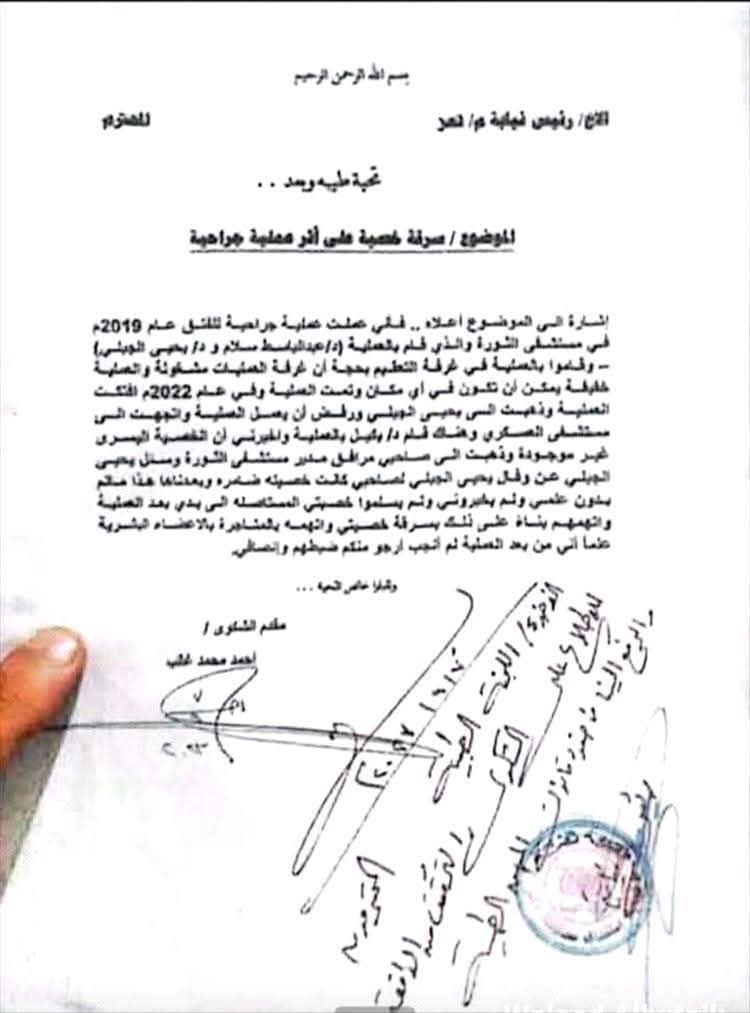 بسم الله الرحمن الرحيم
الاخ/ رئيس نيابة م/ تعز المحترم
تحية طيبه وبعد ..
الموضوع / سرقة خصية على أثر عملية جراحية
إشارة الى الموضوع أعلاه .. فأني عملت عملية جراحية للفتق عام 2019م
في مستشفى الثورة والذي قام بالعملية (د/عبدالباسط سلام و د/ يحيى الجبلي)
– وقاموا بالعملية في غرفة التعقيم بحجة أن غرفة العمليات مشغولة والعملية
خفيفة يمكن أن تكون في أي مكان وتمت العملية وفي عام 2022م افتكت
العملية وذهبت الى يحيى الجبلي ورفض أن يعمل العملية واتجهت الى
مستشفى العسكري وهناك قام د/ بالعملية واخبرني أن الخصية اليسرى
غير موجودة وذهبت الى صاحبي مرافق مدير مستشفى الثورة وسائل يحيى
الجبلي عن وقال يحيى الجبلي لصاحبي كانت خصيته ضامره وبعدناها هذا ماتم
بدون علمي ولم يخبروني ولم يسلموا خصيتي المستاصله الى يدي بعد العملية
واتهمهم بناءً على ذلك بسرقة خصيتي واتهمه بالمتاجرة بالاعضاء البشرية
علماً أني من بعد العملية لم أنجب أرجو منكم ضبطهم وإنصافي.
وتقبلوا خالص التحيه ...
مقدم الشكوى /
احمد محمد غالب
٢٠٢٣
الاخوة/ اللجنة الطبية
للاطلاع على الشكوى
الطبية